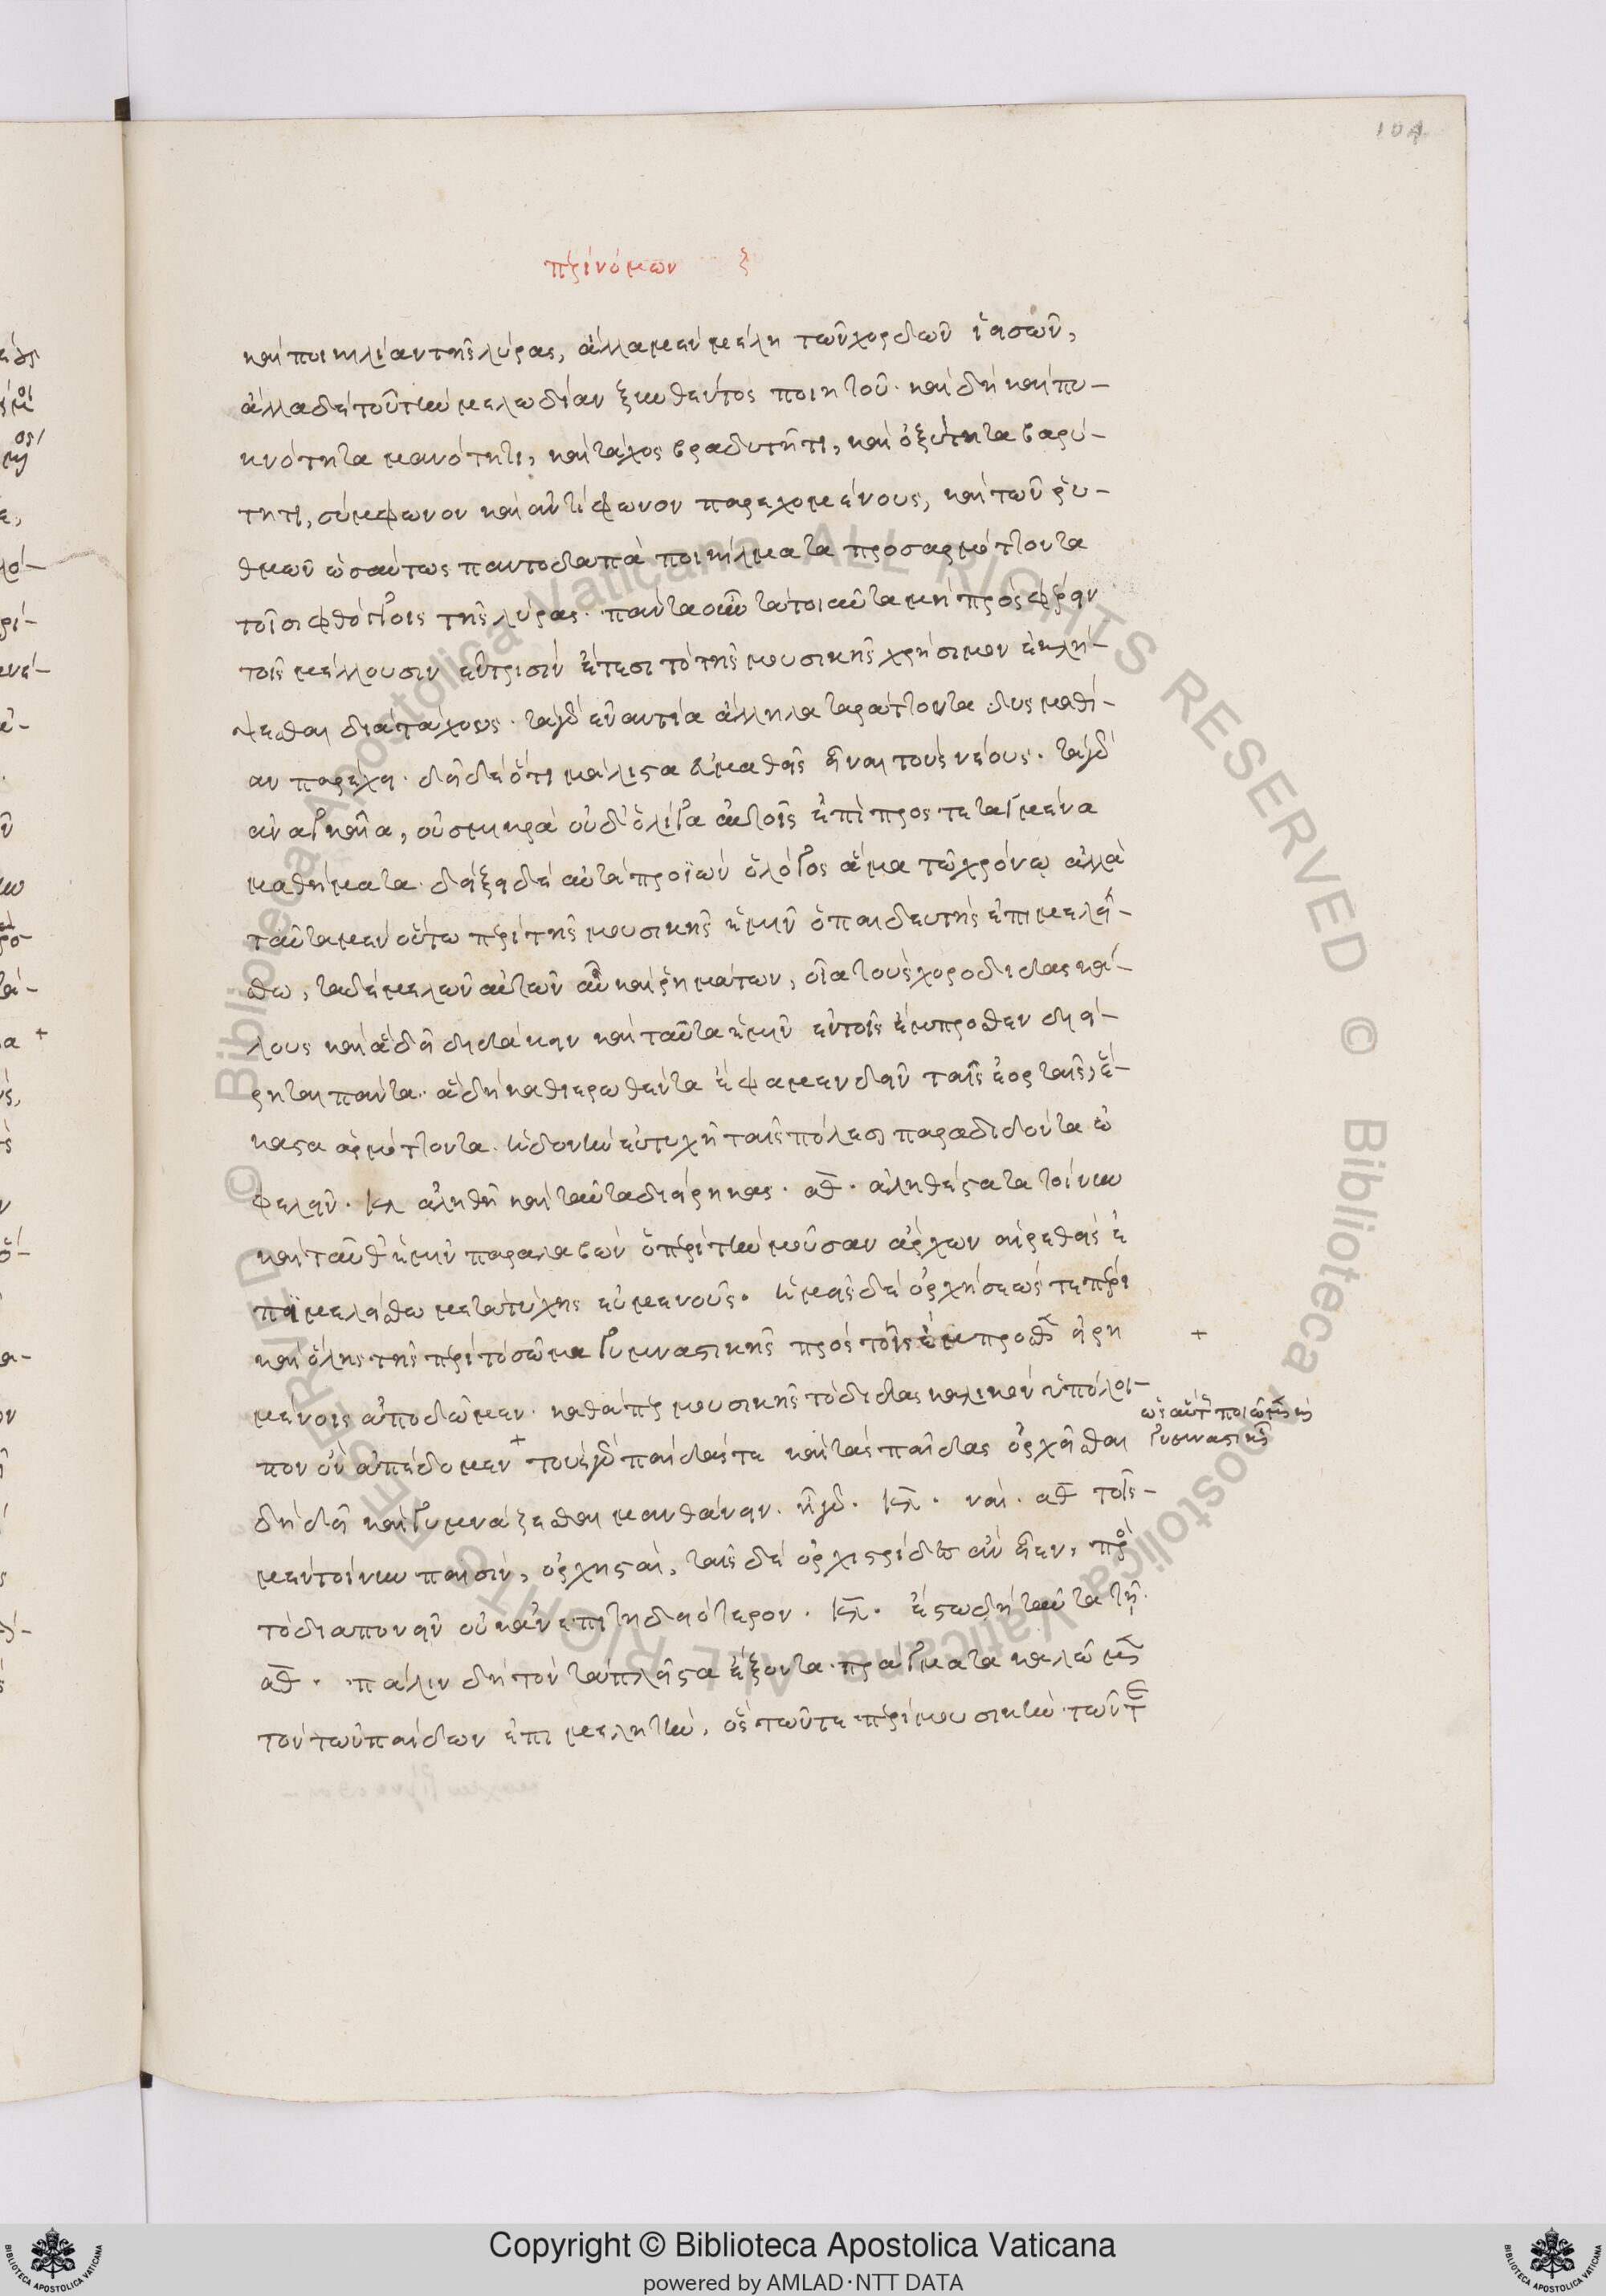 104
περὶ νόμων ζ
καὶ ποικιλίαν τῆς λύρας, ἄλλα μὲν μέλη τῶν χορδῶν ἱεισῶν,
ἄλλα δὲ τοῦ τὴν μελωδίαν ξυνθέντος ποιητοῦ· καὶ δὴ καὶ πυ-
κνότητα μανότητι, καὶ τάχος βραδυτῆτι, καὶ ὀξύτητα βαρύ-
τητι, σύμφωνον καὶ ἀντίφωνον παρεχομένους, καὶ τῶν ῥυ-
θμῶν ὡσαύτως παντοδαπὰ ποικίλματα προσαρμόττοντα
τοῖσι φθόγγοις τῆς λύρας· πάντα οὖν τὰ τοιαῦτα μὴ προσφέρειν
τοῖς μέλλουσιν ἐν τρισὶν ἔτεσι τὸ τῆς μουσικῆς χρήσιμον ἐκλή-
ψεσθαι διὰ τάχους· τὰ γὰρ ἐναντία ἄλληλα ταράττοντα δυσμαθί-
αν παρέχει· δεῖ δὲ ὅτι μάλιστα εὐμαθεῖς εἶναι τοὺς νέους· τὰ γὰρ
ἀναγκαῖα, οὐ σμικρὰ οὐδ' ὀλίγα αὐτοῖς ἐπιπροστεταγμένα
μαθήματα· δείξει δὲ αὐτὰ προϊὼν ὁ λόγος ἅμα τῷ χρόνῳ ἀλλὰ
ταῦτα μὲν οὕτω περὶ τῆς μουσικῆς ἡμῖν ὁ παιδευτὴς ἐπιμελεί-
σθω, τὰ δὲ μελῶν αὐτῶν αὖ καὶ ῥημάτων, οἷα τοὺς χοροδιδασκά-
λους καὶ ἃ δεῖ διδάσκειν καὶ ταῦτα ἡμῖν ἐν τοῖς ἔμπροσθεν διεί-
ρηται πάντα· ἃ δὴ καθιερωθέντα ἔφαμεν δεῖν ταῖς ἑορταῖς, ἕ-
καστα ἁρμόττοντα· ἡδονὴν εὐτυχῆ ταῖς πόλεσι παραδιδόντα ὠ
φελεῖν· κλ ἀληθῆ καὶ ταῦτα διείρηκας· αθ· ἀληθέστατα τοίνυν
καὶ ταῦθ' ἡμῖν παραλαβὼν ὁ περὶ τὴν μοῦσαν ἄρχων αἱρεθεὶς ἐ
πιμελείσθω μετὰ τύχης εὐμενοῦς· ἡμεῖς δὲ ὀρχήσεώς τε πέρι
καὶ ὅλης τῆς περὶ τὸ σῶμα γυμναστικῆς πρὸς τοῖς ἔμπροσθεν εἰρη +
μένοις ἀποδῶμεν· καθάπερ μουσικῆς τὸ διδασκαλικὸν ὑπόλοι-
πον ὂν ἀπέδομεν + τοὺς γὰρ παῖδάς τε καὶ τὰς παῖδας ὀρχεῖσθαι
ὡσαύτως ποιῶμεν καὶ
γυμναστικῆς
δὴ δεῖ καὶ γυμνάζεσθαι μανθάνειν· ἦ γάρ· κλ· ναί· αθ τοῖς-
μὲν τοίνυν παισὶν, ὀρχησταὶ, ταῖς δὲ ὀρχιστρίδες ἂν εἶεν, πρὸς
τὸ διαπονεῖν οὐκ ἀνεπιτηδειότερον· κλ· ἔστω δὴ ταῦτα τῇ·
αθ· πάλιν δὴ τὸν τὰ πλεῖστα ἕξοντα πράγματα καλῶμεν
τὸν τῶν παίδων ἐπιμελητὴν, ὃς τῶν τε περὶ μουσικὴν τῶν τε